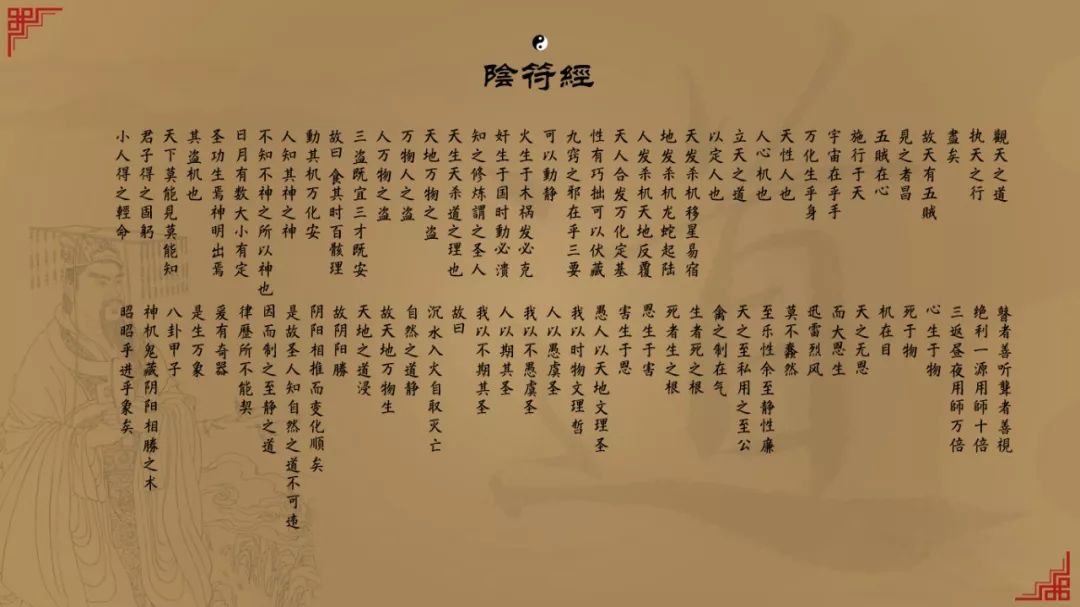 陰符經
觀天之道
执天之行
盡矣
故天有五賊
見之者昌
五賊在心
施行于天
宇宙在乎手
万化生乎身
天性人也
人心机也
立天之道
以定人也
天发杀机移星易宿
地发杀机龙蛇起陆
人发杀机天地反覆
天人合发万化定基
性有巧拙可以伏藏
九窍之邪在乎三要
可以動静
火生于木祸发必克
奸生于国时動必潰
知之修炼謂之圣人
天生天杀道之理也
天地万物之盗
万物人之盗
人万物之盗
三盗既宜三才既安
故曰食其时百骸理
動其机万化安
人知其神之神
不知不神之所以神也
日月有数大小有定
圣功生焉神明出焉
其盗机也
天下莫能見莫能知
君子得之固躬
小人得之輕命
瞽者善听聾者善視
绝利一源用師十倍
三返昼夜用師万倍
心生于物
死于物
机在目
天之无恩
而大恩生
迅雷烈风
莫不蠢然
至乐性余至静性廉
天之至私用之至公
禽之制在气
生者死之根
死者生之根
恩生于害
害生于恩
愚人以天地文理圣
我以时物文理哲
人以愚虞圣
我以不愚虞圣
人以期其圣
我以不期其圣
故曰
沉水入火自取灭亡
自然之道静
故天地万物生
天地之道浸
故阴阳勝
阴阳相推而变化順矣
是故圣人知自然之道不可违
因而制之至静之道
律曆所不能契
爰有奇器
是生万象
八卦甲子
神机鬼藏阴阳相勝之术
昭昭乎进乎象矣